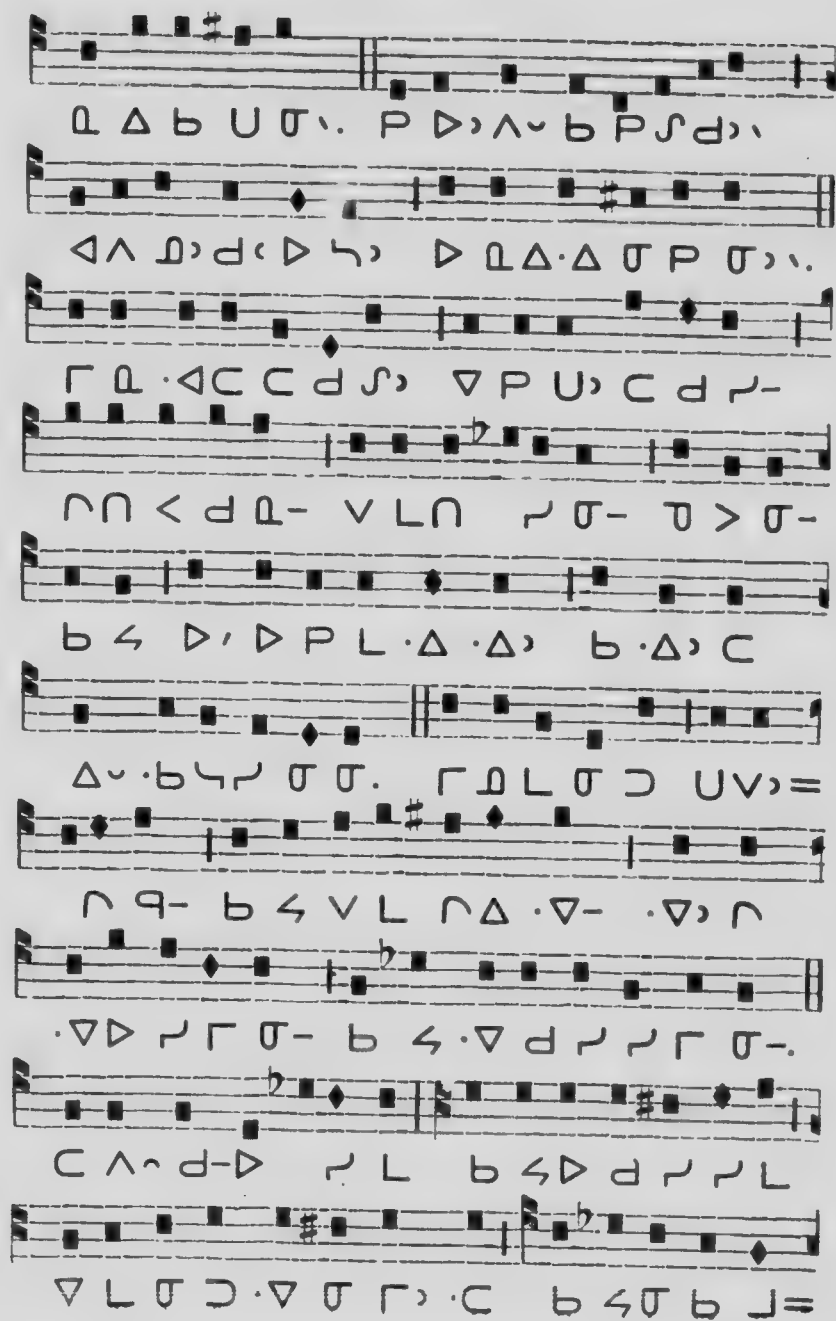 ᓇ ᐃ ᑲ ᑌ ᓂ ᐠ. ᑭ ᐅᐣ ᐱ ᵕ ᑲ ᑭ ᔑ ᑯᐣ ᐠ
ᐊ ᐱ ᓈᐣ ᑯᑉ ᐅ ᓴᐣ ᐅ ᓇ ᐃ ·ᐃ ᓂ ᑭ ᓂᐣ ᐠ.
ᒥ ᓇ ·ᐊ ᑕ ᑕ ᑯ ᔑᐣ ᐁ ᑭ ᑌᐣ ᑕ ᑯ ᓯ-
ᒋ ᑎ ᐸ ᑯ ᓇ- ᐯ ᒪ ᑎ ᓯ ᓂ- ᓄ ᐳ ᓂ-
ᑲ ᔭ ᐅᐟ ᐅ ᑭ ᒪ ·ᐃ ·ᐃᐣ ᑲ ·ᐃᐣ ᑕ
ᐃ ᵕ ·ᑲ ᓴ ᓯ ᓂ ᓂ. ᒥ ᓈ ᒪ ᓂ ᑐ ᑌ ᐯᐣ=
ᒋ ᑫ- ᑲ ᔭ ᐯ ᒪ ᒋ ᐃ ·ᐁ- ·ᐁᐣ ᒋ
·ᐁ ᐅ ᓯ ᒥ ᓂ- ᑲ ᔭ ·ᐁ ᑯ ᓯ ᓯ ᒥ ᓂ-.
ᑕ ᐱᐢ ᑯ-ᐅ ᓯ ᒪ ᑲ ᔭ ᐅ ᑯ ᓯ ᓯ ᒪ
ᐁ ᒪ ᓂ ᑐ ·ᐁ ᓂ ᒥᐣ ·ᑕ ᑲ ᔭ ᓂ ᑲ ᒧ=